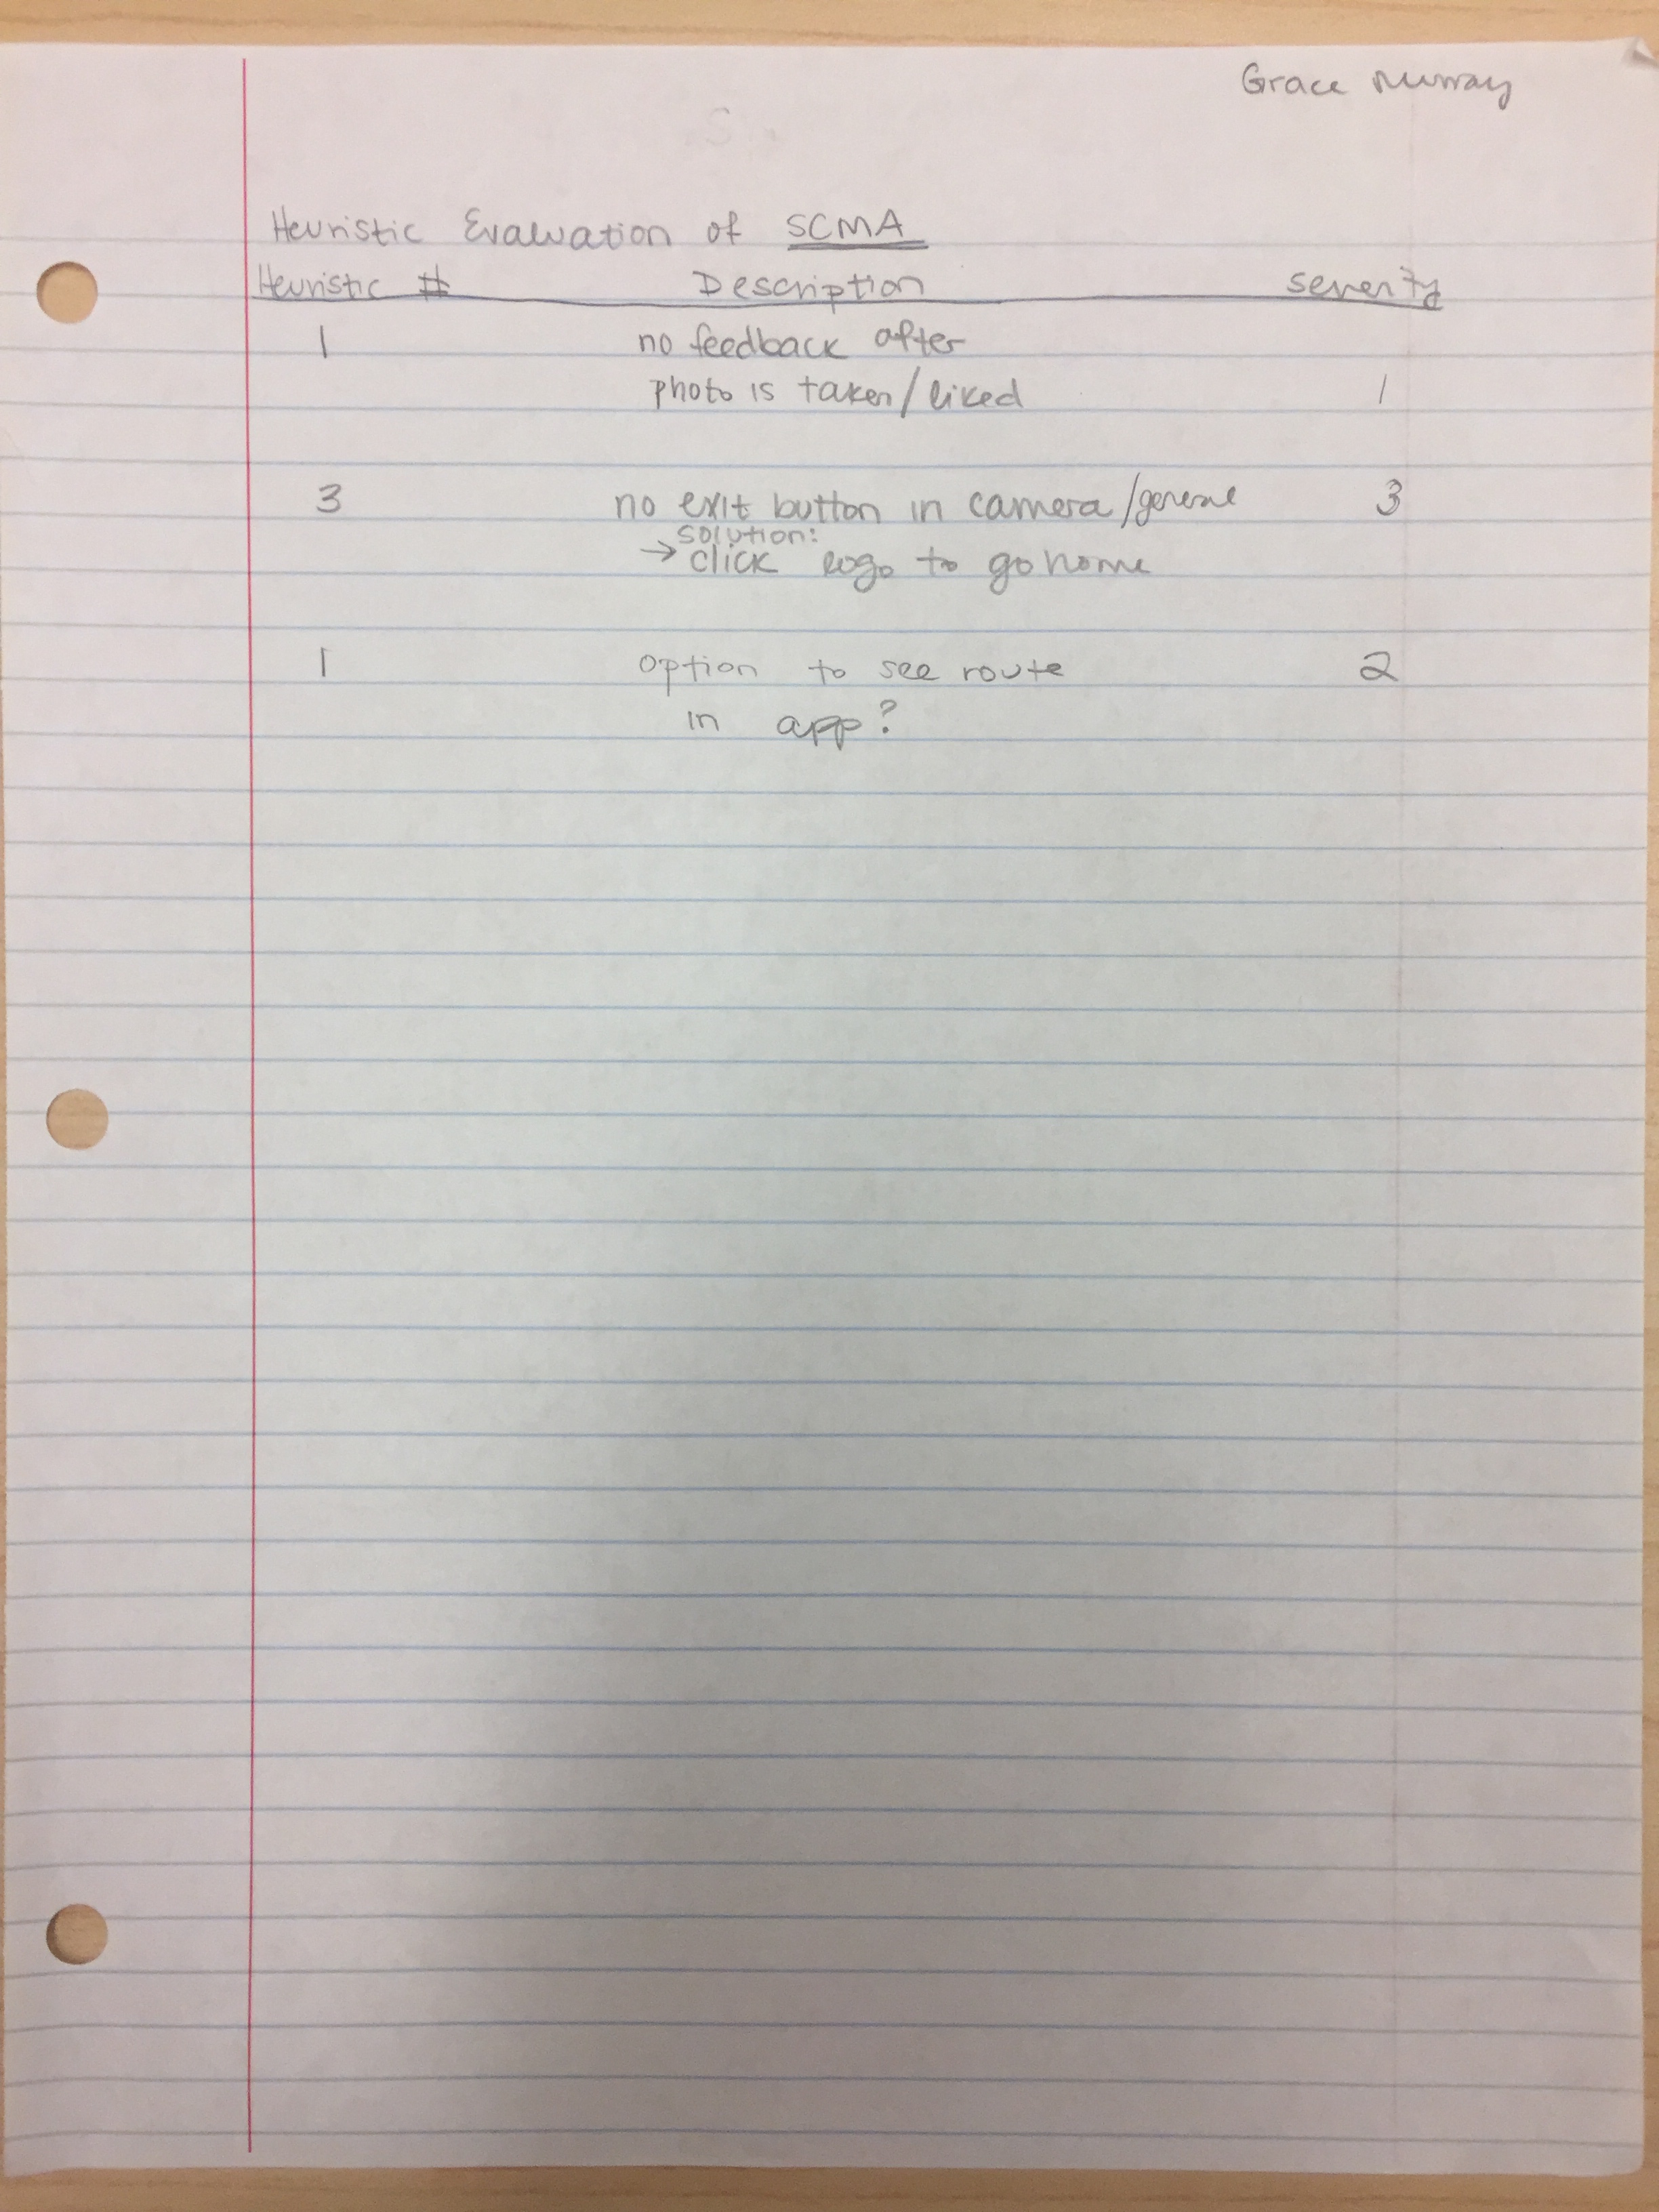 Grace Murray
Heuristic Evaluation of SCMA
Heuristic # Description severity
1 no feedback after
photo is taken/liked 1
3 no exit button in camera/general 3
solution:
→ click logo to go home
1 option to see route 2
in app?